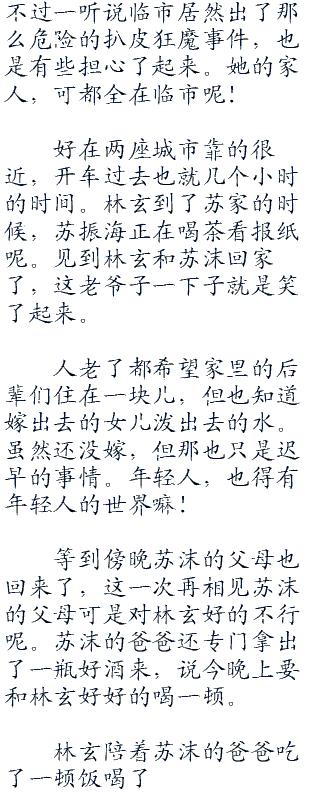 不过一听说临市居然出了那
么危险的扒皮狂魔事件，也
是有些担心了起来。她的家
人，可都全在临市呢！
好在两座城市靠的很
近，开车过去也就几个小时
的时间。林玄到了苏家的时
候，苏振海正在喝茶看报纸
呢。见到林玄和苏沫回家
了，这老爷子一下子就是笑
了起来。
人老了都希望家里的后
辈们住在一块儿，但也知道
嫁出去的女儿泼出去的水。
虽然还没嫁，但那也只是迟
早的事情。年轻人，也得有
年轻人的世界嘛！
等到傍晚苏沫的父母也
回来了，这一次再相见苏沫
的父母可是对林玄好的不行
呢。苏沫的爸爸还专门拿出
了一瓶好酒来，说今晚上要
和林玄好好的喝一顿。
林玄陪着苏沫的爸爸吃
了一顿饭喝了